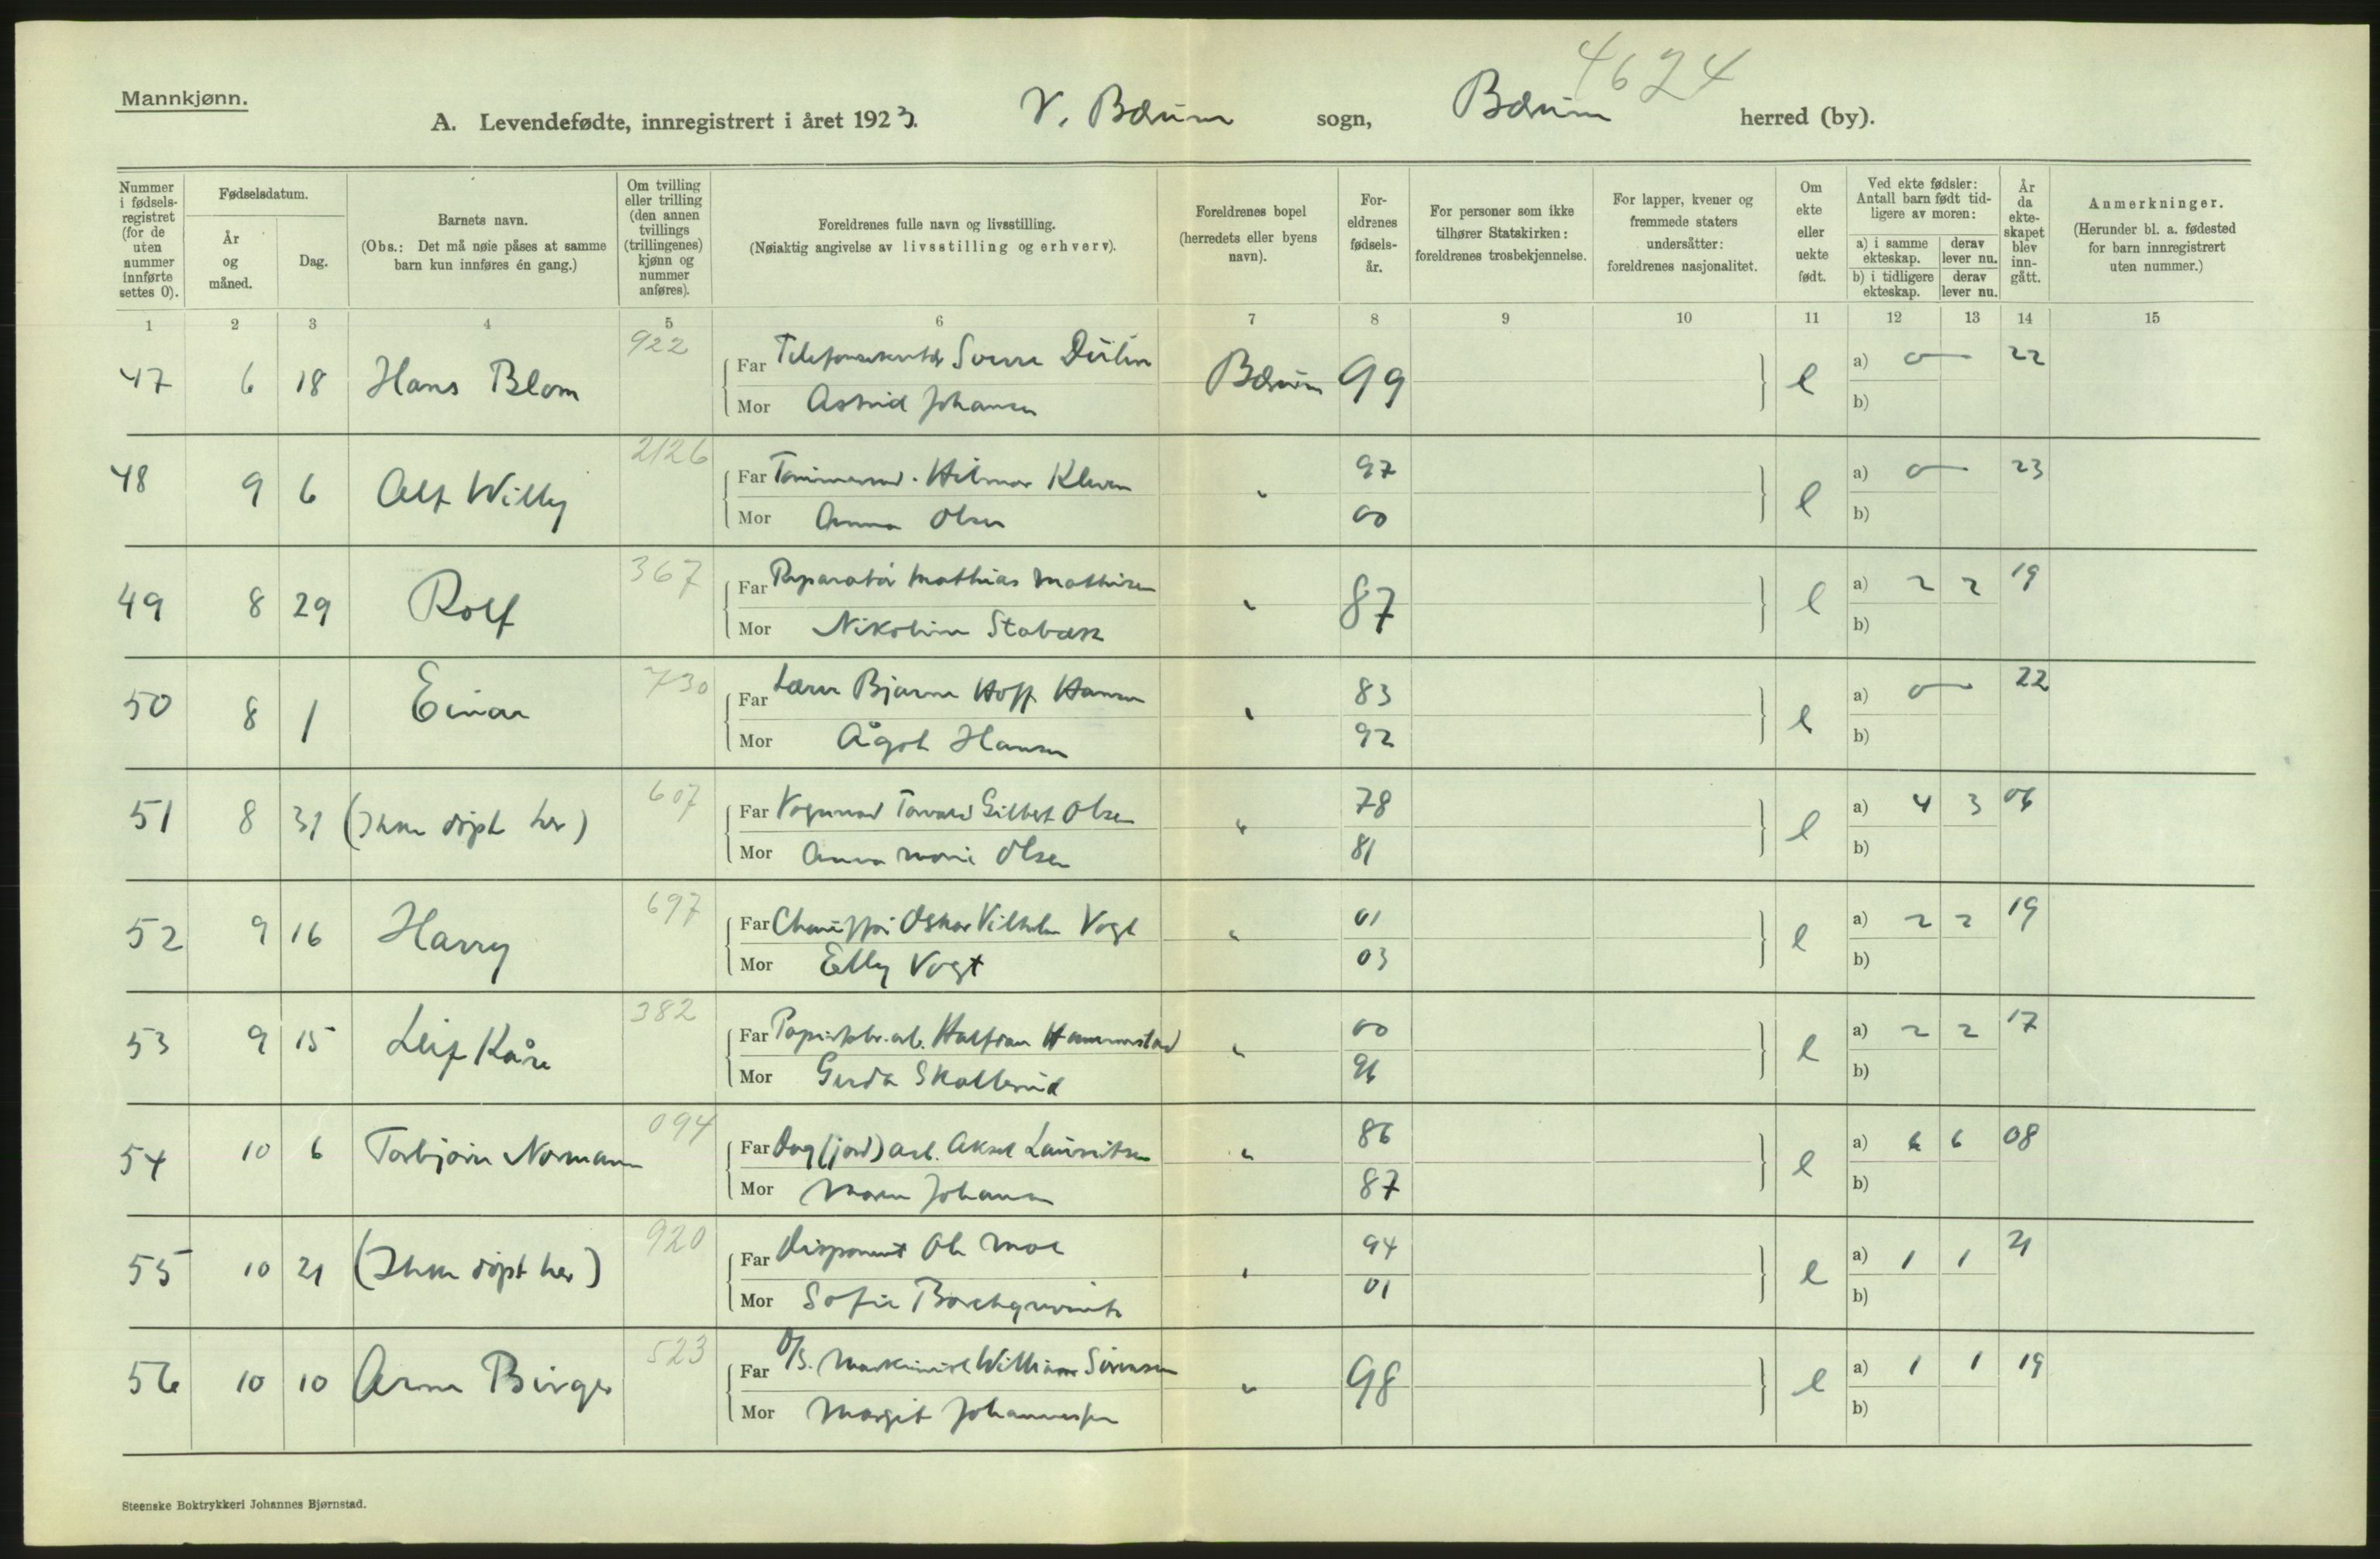 4624
Mannkjønn.
A. Levendefødte, innregistrert i året 1923. V. Bærum sogn, Bærum herred (by).
Nummer i fødsels-registret (for de uten nummer innførte settes 0).
Fødselsdatum.
År og måned.
Dag.
Barnets navn.
(Obs.: Det må nøie påses at samme barn kun innføres én gang.)
Om tvilling eller trilling (den annen tvillings (trillingenes) kjønn og nummer anføres).
Foreldrenes fulle navn og livsstilling.
(Nøiaktig angivelse av livsstilling og erhverv).
Foreldrenes bopel (herredets eller byens navn).
For-eldrenes fødsels-år.
For personer som ikke tilhører Statskirken: foreldrenes trosbekjennelse.
For lapper, kvener og fremmede staters undersåtter: foreldrenes nasjonalitet.
Om ekte eller uekte født.
Ved ekte fødsler: Antall barn født tid-ligere av moren:
a) i samme ekteskap. derav lever nu.
b) i tidligere ekteskap. derav lever nu.
År da ekte-skapet blev inn-gått.
Anmerkninger.
(Herunder bl. a. fødested for barn innregistrert uten nummer.)
1 2 3 4 5 6 7 8 9 10 11 12 13 14 15
922
47 6 18 Hans Blom Far Sverre Bærum 99 e a) 0 — 22
Mor Astrid Johansen b)
2126
48 9 6 Alf Willy Far Hilmar Kleven " 97 e a) 0 — 23
Mor Anna Olsen 00 b)
367
49 8 29 Rolf Far Reparatør Mathias Mathisen " 87 e a) 2 2 19
Mor Nikoline Stabæk b)
730
50 8 1 Einar Far Lærer Bjarne Hoff Hansen " 83 e a) 0 — 22
Mor Ågot Hansen 92 b)
607
51 8 31 (Ikke døpt her) Far Gilbert Olsen " 78 e a) 4 3
Mor Anna Marie Olsen 81 b)
697
52 9 16 Harry Far Chauffør Oskar Vilhelm Vogt " 01 e a) 2 2 19
Mor Elly Vogt 03 b)
382
53 9 15 Leif Kåre Far Papirfabr.arb. Halfdan Hammerstad " 00 e a) 2 2 17
Mor Gerda Skollerud 96 b)
094
54 10 6 Torbjørn Normann Far Dag(jord)arb. Aksel Lauritsen " 86 e a) 6 6 08
Mor Maren Johansen 87 b)
920
55 10 21 (Ikke døpt her) Far Disponent Ole Moe " 94 e a) 1 1 21
Mor Sofie Borchgrevink 01 b)
523
56 10 10 Arne Birger Far Maskinist William Sørensen " 98 e a) 1 1 19
Mor Margit Johannessen b)
Steenske Boktrykkeri Johannes Bjørnstad.